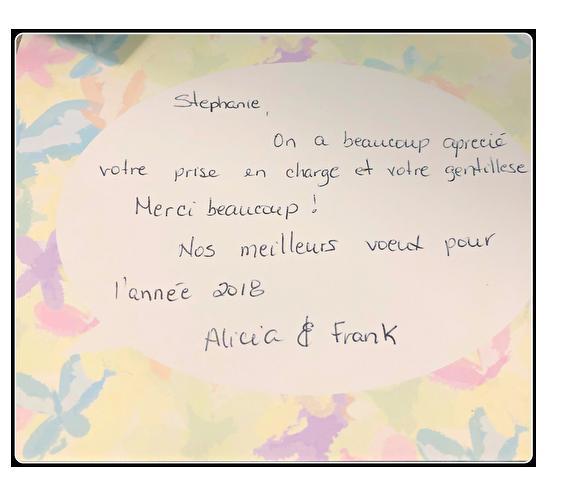 Stephanie,
On a beaucoup aprecié
votre prise en charge et votre gentillese
Merci beaucoup !
Nos meilleurs voeux pour
l'année 2018
Alicia & Frank